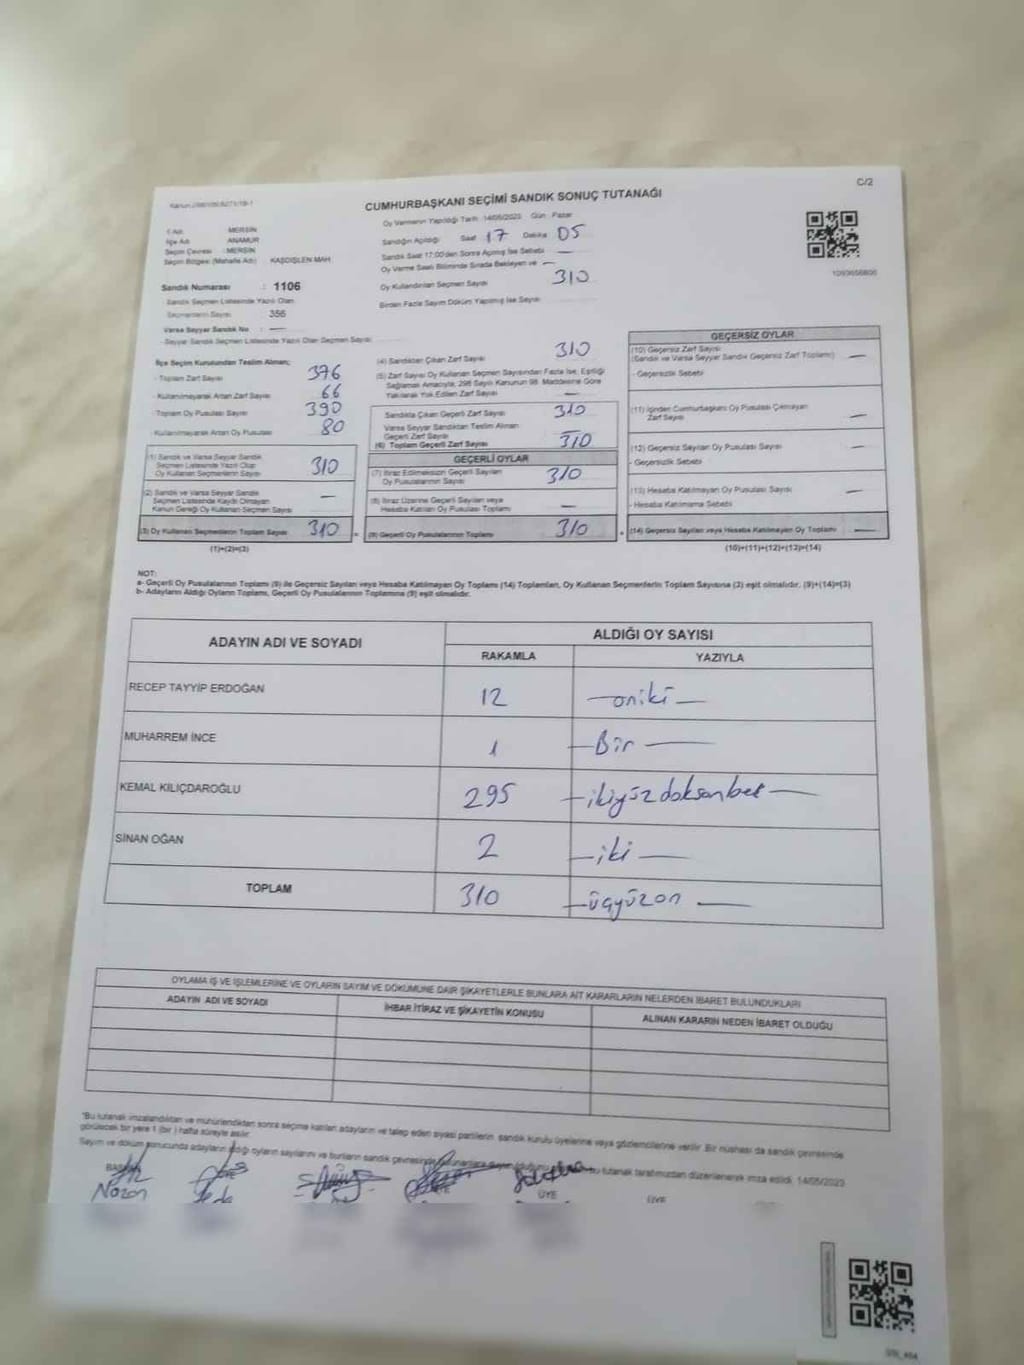 C/2
CUMHURBAŞKANI SEÇİMİ SANDIK SONUÇ TUTANAĞI
Oy Vermenin Yapıldığı Tarih : 14/05/2023 Gün : Pazar
İl Adı : MERSİN
İlçe Adı : ANAMUR
Seçim Çevresi : MERSİN
Seçim Bölgesi (Mahalle Adı) : KAŞDİŞLEN MAH.
Sandığın Açıldığı Saat 17 Dakika 05
Sandık Saat 17:00'den Sonra Açılmış İse Sebebi —
Oy Verme Saati Bitiminde Sırada Bekleyen ve —
Oy Kullandırılan Seçmen Sayısı 310
Birden Fazla Sayım Döküm Yapılmış İse Sayısı
Sandık Numarası : 1106
Sandık Seçmen Listesinde Yazılı Olan
Seçmenlerin Sayısı : 356
Varsa Seyyar Sandık No : —
- Seyyar Sandık Seçmen Listesinde Yazılı Olan Seçmen Sayısı
İlçe Seçim Kurulundan Teslim Alınan;
- Toplam Zarf Sayısı 376
- Kullanılmayarak Artan Zarf Sayısı 66
- Toplam Oy Pusulası Sayısı 390
- Kullanılmayarak Artan Oy Pusulası 80
(1) Sandık ve Varsa Seyyar Sandık
Seçmen Listesinde Yazılı Olup
Oy Kullanan Seçmenlerin Sayısı 310
(2) Sandık ve Varsa Seyyar Sandık
Seçmen Listesinde Kaydı Olmayan
Kanun Gereği Oy Kullanan Seçmen Sayısı —
(3) Oy Kullanan Seçmenlerin Toplam Sayısı 310
(1)+(2)=(3)
(4) Sandıktan Çıkan Zarf Sayısı 310
(5) Zarf Sayısı Oy Kullanan Seçmen Sayısından Fazla İse, Eşitliği
Sağlamak Amacıyla, 298 Sayılı Kanunun 98. Maddesine Göre
Yakılarak Yok Edilen Zarf Sayısı —
Sandıkta Çıkan Geçerli Zarf Sayısı 310
Varsa Seyyar Sandıktan Teslim Alınan
Geçerli Zarf Sayısı —
(6) Toplam Geçerli Zarf Sayısı 310
GEÇERLİ OYLAR
(7) İtiraz Edilmeksizin Geçerli Sayılan
Oy Pusulalarının Sayısı 310
(8) İtiraz Üzerine Geçerli Sayılan veya
Hesaba Katılan Oy Pusulası Toplamı —
(9) Geçerli Oy Pusulalarının Toplamı 310
GEÇERSİZ OYLAR
(10) Geçersiz Zarf Sayısı
(Sandık ve Varsa Seyyar Sandık Geçersiz Zarf Toplamı) —
- Geçersizlik Sebebi
(11) İçinden Cumhurbaşkanı Oy Pusulası Çıkmayan
Zarf Sayısı —
(12) Geçersiz Sayılan Oy Pusulası Sayısı —
- Geçersizlik Sebebi
(13) Hesaba Katılmayan Oy Pusulası Sayısı —
- Hesaba Katılmama Sebebi
(14) Geçersiz Sayılan veya Hesaba Katılmayan Oy Toplamı —
(10)+(11)+(12)+(13)=(14)
NOT:
a- Geçerli Oy Pusulalarının Toplamı (9) ile Geçersiz Sayılan veya Hesaba Katılmayan Oy Toplamı (14) Toplamları, Oy Kullanan Seçmenlerin Toplam Sayısına (3) eşit olmalıdır. (9)+(14)=(3)
b- Adayların Aldığı Oyların Toplamı, Geçerli Oy Pusulalarının Toplamına (9) eşit olmalıdır.
ADAYIN ADI VE SOYADI ALDIĞI OY SAYISI
RAKAMLA YAZIYLA
RECEP TAYYİP ERDOĞAN 12 —oniki—
MUHARREM İNCE 1 —Bir—
KEMAL KILIÇDAROĞLU 295 —ikiyüzdoksanbeş—
SİNAN OĞAN 2 —iki—
TOPLAM 310 —üçyüzon—
OYLAMA İŞ VE İŞLEMLERİNE VE OYLARIN SAYIM VE DÖKÜMÜNE DAİR ŞİKAYETLERLE BUNLARA AİT KARARLARIN NELERDEN İBARET BULUNDUKLARI
ADAYIN ADI VE SOYADI İHBAR İTİRAZ VE ŞİKAYETİN KONUSU ALINAN KARARIN NEDEN İBARET OLDUĞU
"Bu tutanak imzalandıktan ve mühürlendikten sonra seçime katılan adayların ve talep eden siyasi partilerin, sandık kurulu üyelerine veya gözlemcilerine verilir. Bir nüshası da sandık çevresinde
görülecek bir yere 1 (bir) hafta süreyle asılır.
Sayım ve döküm sonucunda adayların aldığı oyların sayılarını ve bunların sandık çevresinde bu tutanak tarafımızdan düzenlenerek imza edildi. 14/05/2023
ÜYE ÜYE